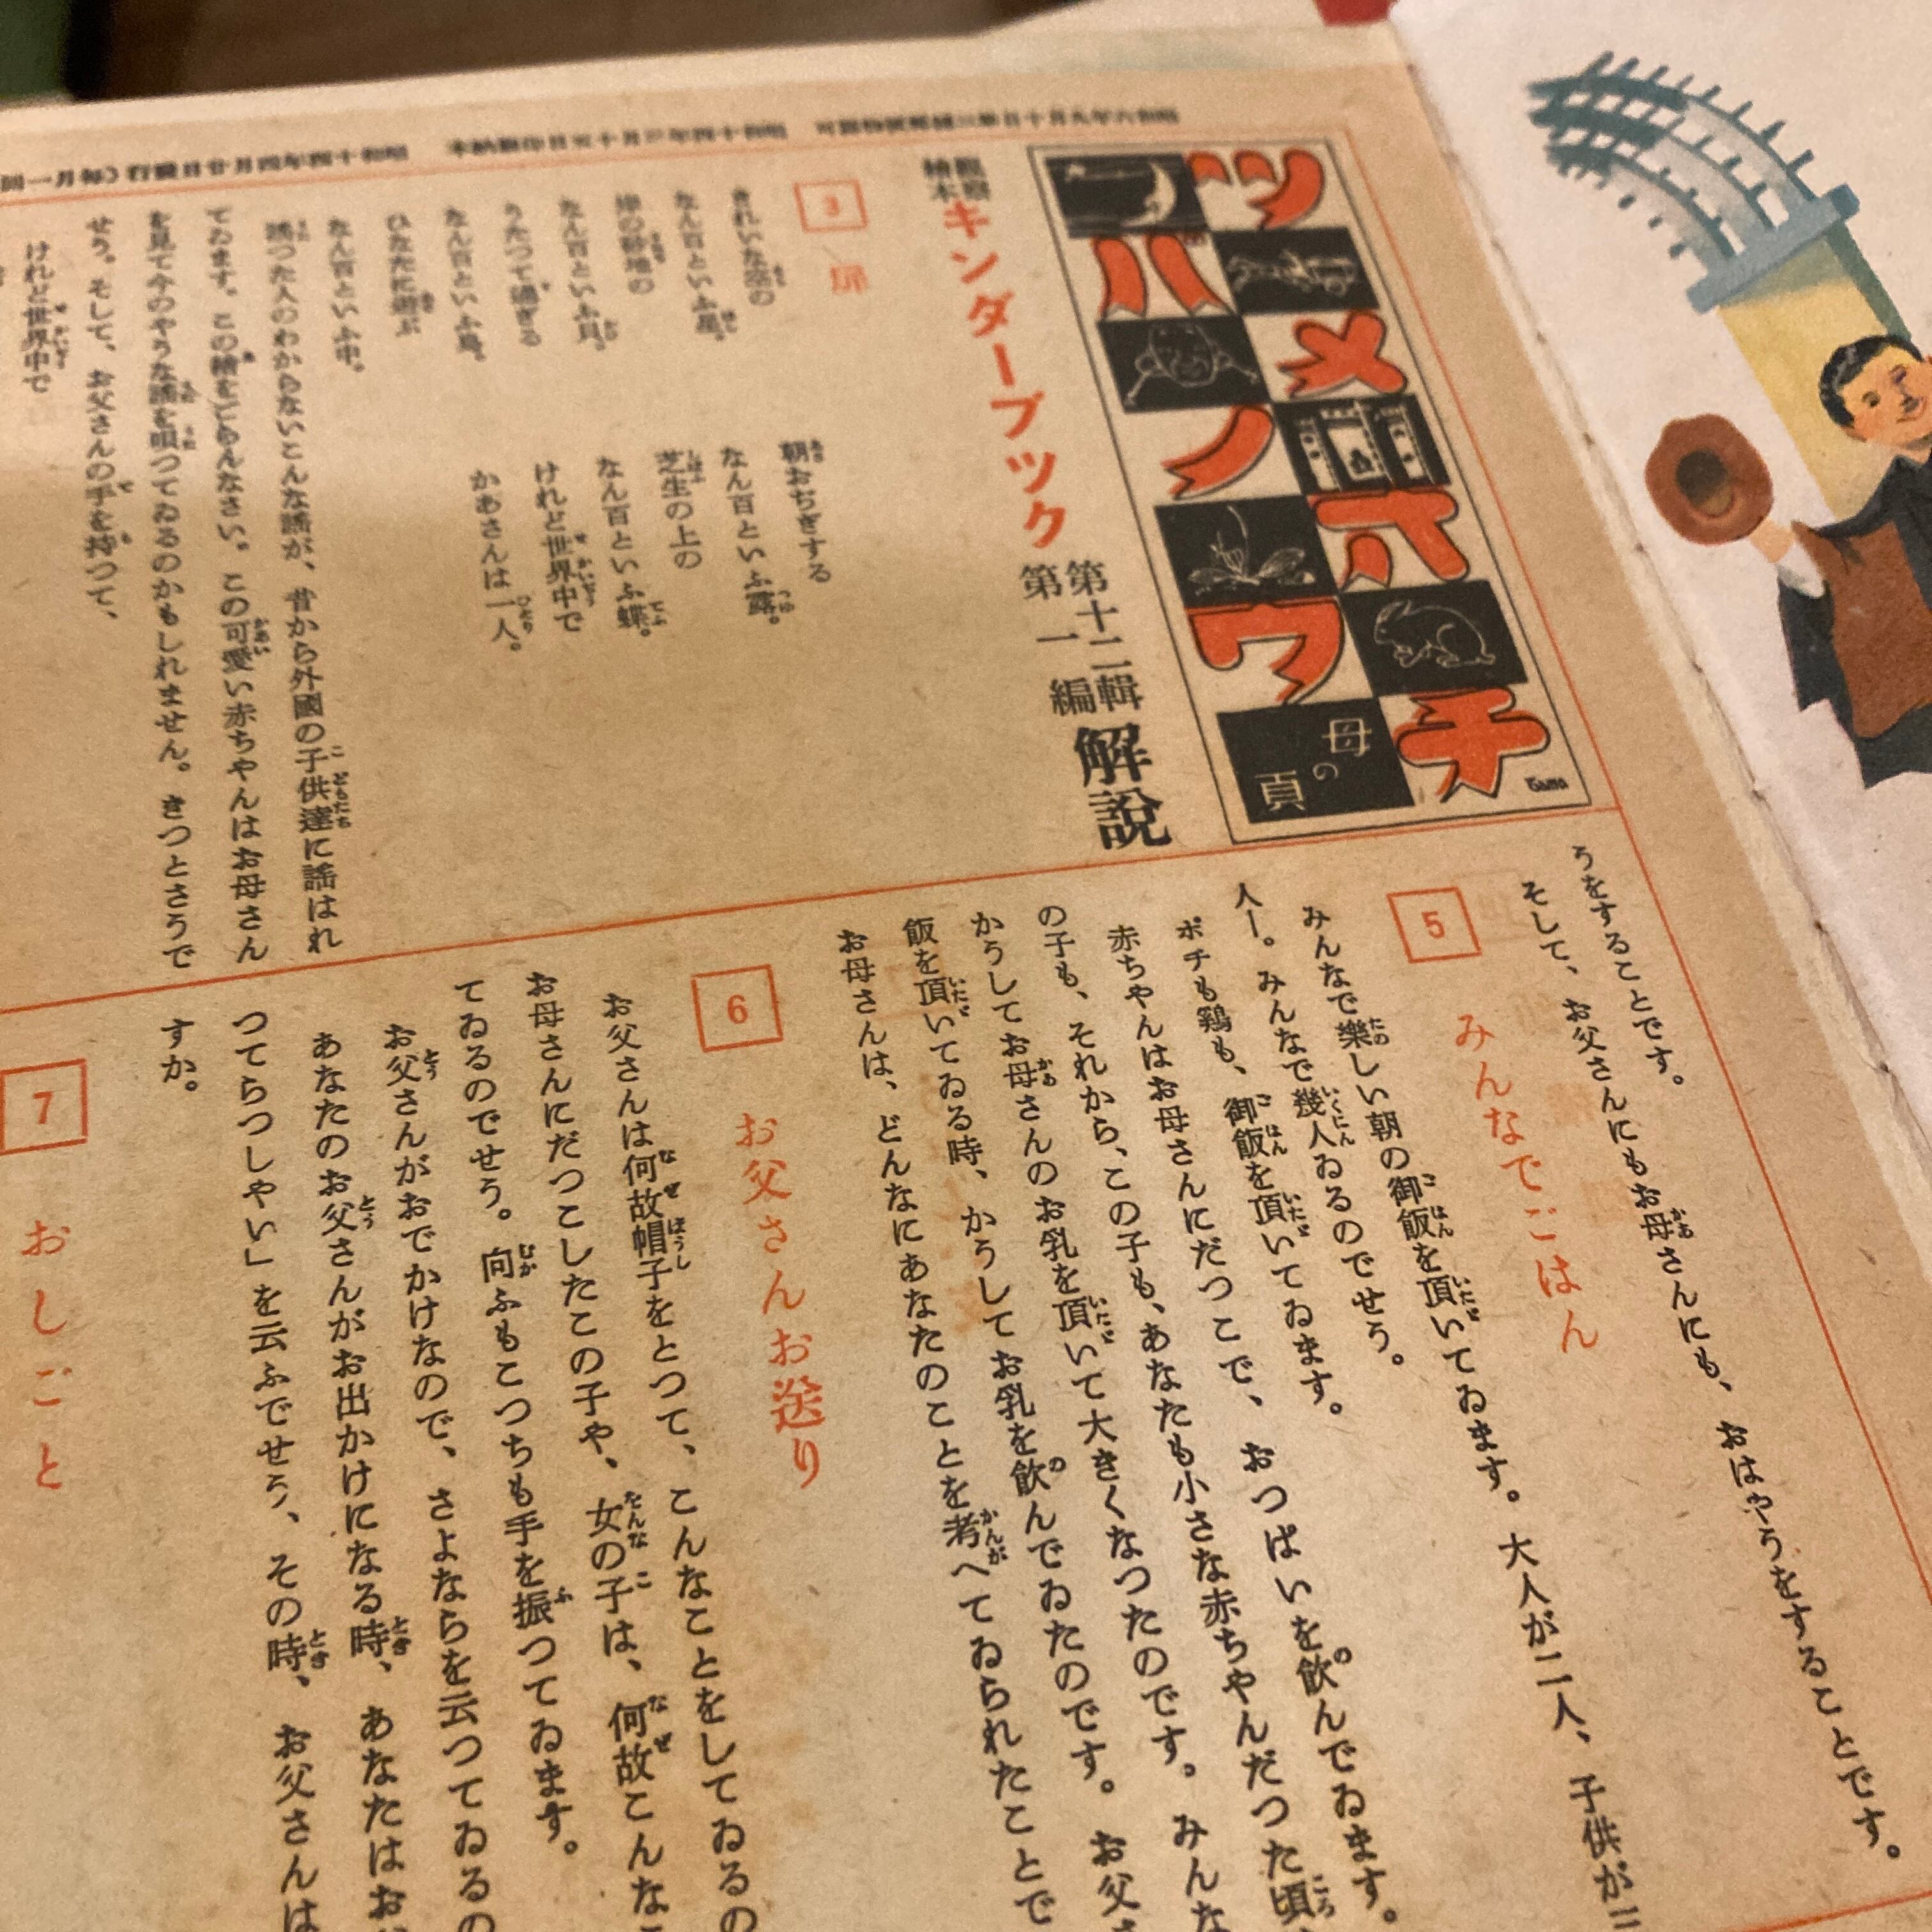 昭和六年九月十日第三種郵便物認可　昭和十四年三月十五日印刷納本　昭和十四年四月廿日發行(每月一回
ツバメノ
母の頁
觀察繪本
キンダーブツク
第十二輯
第一編
解說
3 扉
きれいな空の
なん百といふ星。
なん百といふ貝。
うたつて過ぎる
なん百といふ鳥。
ひなたに遊ぶ
なん百といふ虫。
朝おぢぎする
なん百といふ露。
芝生の上の
なん百といふ蝶。
けれど世界中で
かあさんは一人。
謠つた人のわからないこんな謠が、昔から外國の子供達に謠はれ
てゐます。この繪をごらんなさい。この可愛い赤ちやんはお母さん
を見て今のやうな謠を唄つてゐるのかもしれません。きつとさうで
せう。そして、お父さんの手を持つて、
けれど世界中で
うをすることです。
そして、お父さんにもお母さんにも、おはやうをすることです。
5 みんなでごはん
みんなで樂しい朝の御飯を頂いてゐます。大人が二人、子供が二
人ー。みんなで幾人ゐるのでせう。
ポチも鷄も、御飯を頂いてゐます。
赤ちやんはお母さんにだつこで、おつぱいを飮んでゐます。
の子も、それから、この子も、あなたも小さな赤ちやんだつた頃、
かうしてお母さんのお乳を頂いて大きくなつたのです。みんな
飯を頂いてゐる時、かうしてお乳を飮んでゐたのです。お父さ
お母さんは、どんなにあなたのことを考へてゐられたことで
6 お父さんお送り
お父さんは何故帽子をとつて、こんなことをしてゐるの
お母さんにだつこしたこの子や、女の子は、何故こんなこ
てゐるのでせう。向ふもこつちも手を振つてゐます。
お父さんがおでかけなので、さよならを云つてゐるの
あなたのお父さんがお出かけになる時、あなたはお
つてらつしやい」を云ふでせう、その時、お父さんは
すか。
7 おしごと